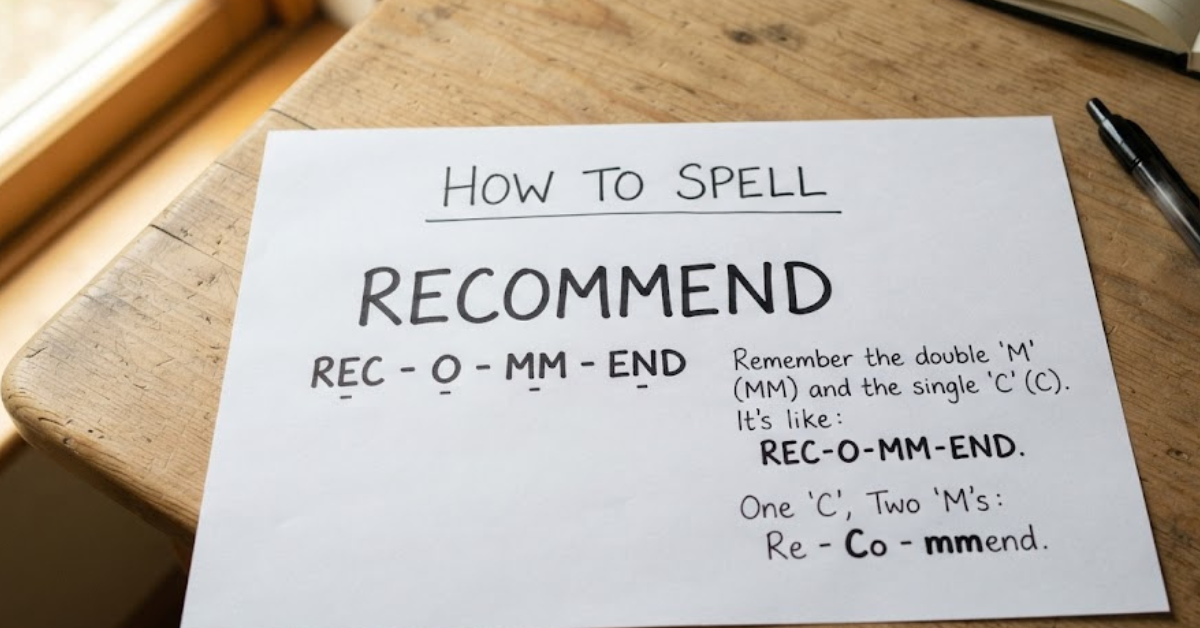 HOW TO SPELL
RECOMMEND
REC - O - MM - END
Remember the double 'M'
(MM) and the single 'C' (C).
It's like:
REC-O-MM-END.
One 'C', Two 'M's:
Re - Co - mmend.